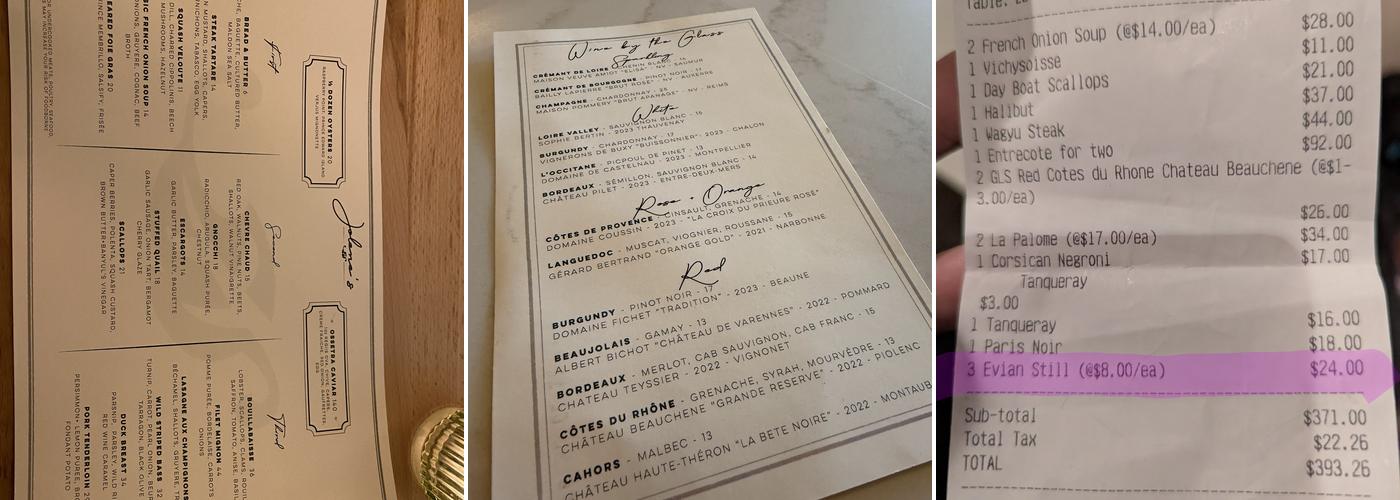 ½ DOZEN OYSTERS 20
RASPBERRY POINT, PRINCE EDWARD ISLAND
VERJUS MIGNONETTE
OSSETRA CAVIAR 140
First
BREAD & BUTTER 6
CHE, BAGUETTE, CULTURED BUTTER,
MALDON SEA SALT
STEAK TARTARE 14
N MUSTARD, SHALLOTS, CAPERS,
NICHONS, TABASCO, EGG YOLK
SQUASH VELOUTE 11
DILL, CHARRED CIPPOLINIS, BEECH
MUSHROOMS, HAZELNUT
SIC FRENCH ONION SOUP 14
ONIONS, GRUYERE, COGNAC, BEEF
BROTH
EARED FOIE GRAS 20
INCE, MEMBRILLO, SALSIFY, FRISÉE
OR UNDERCOOKED MEATS, POULTRY, SEAFOOD,
S MAY INCREASE YOUR RISK OF FOODBORNE
Second
CHEVRE CHAUD 15
RED OAK, WALNUTS, PINE NUTS, BEETS,
SHALLOTS, WALNUT VINAIGRETTE
GNOCCHI 18
RADICCHIO, ARUGULA, SQUASH PURÉE,
CHESTNUT
ESCARGOTS 14
GARLIC BUTTER, PARSLEY, BAGUETTE
STUFFED QUAIL 18
GARLIC SAUSAGE, ONION TART, BERGAMOT
CHERRY GLAZE
SCALLOPS 21
CAPER BERRIES, POLENTA, SQUASH CUSTARD,
BROWN BUTTER+BANYUL'S VINEGAR
Third
BOUILLABAISSE 36
LOBSTER, SCALLOPS, CLAMS, ROUIL
SAFFRON, TOMATO, ANISE, BASIL
FILET MIGNON 44
POMME PURÉE, BORDELAISE, CARROTS
ONIONS
LASAGNE AUX CHAMPIGNONS
BÉCHAMEL, SHALLOTS, GRUYERE, TR
WILD STRIPED BASS 32
TURNIP, CARROT, PEARL ONION, BEUR
TARRAGON, BLACK OLIVE
DUCK BREAST 34
PARSNIP, PARSLEY, WILD RI
RED WINE CARAMEL
PORK TENDERLOIN 29
PERSIMMON+LEMON PURÉE, BRO
FONDANT POTATO
Wine by the Glass
Sparkling
CRÉMANT DE LOIRE - CHENIN BLANC - 14
MAISON VEUVE AMIOT "ELISA" - NV - SAUMUR
CRÉMANT DE BOURGOGNE - PINOT NOIR - 17
BAILLY LAPIERRE "BRUT ROSÉ" - NV - AUXERRE
CHAMPAGNE - CHARDONNAY - 25
MAISON POMMERY "BRUT APANAGE" - NV - REIMS
White
LOIRE VALLEY - SAUVIGNON BLANC - 15
SOPHIE BERTIN - 2023 THAUVENAY
BURGUNDY - CHARDONNAY - 17
VIGNERONS DE BUXY "BUISSONNIER" - 2023 - CHALON
L'OCCITANE - PICPOUL DE PINET - 13
DOMAINE DE CASTELNAU - 2023 - MONTPELLIER
BORDEAUX - SÉMILLON, SAUVIGNON BLANC - 14
CHÂTEAU PILET - 2023 - ENTRE-DEUX-MERS
Rose + Orange
CÔTES DE PROVENCE - CINSAULT, GRENACHE - 14
DOMAINE COUSSIN - 2023 - "LA CROIX DU PRIEURE ROSE"
LANGUEDOC - MUSCAT, VIOGNIER, ROUSSANE - 15
GÉRARD BERTRAND "ORANGE GOLD" - 2021 - NARBONNE
Red
BURGUNDY - PINOT NOIR - 17
DOMAINE FICHET "TRADITION" - 2023 - BEAUNE
BEAUJOLAIS - GAMAY - 13
ALBERT BICHOT "CHÂTEAU DE VARENNES" - 2022 - POMMARD
BORDEAUX - MERLOT, CAB SAUVIGNON, CAB FRANC - 15
CHATEAU TEYSSIER - 2022 - VIGNONET
CÔTES DU RHÔNE - GRENACHE, SYRAH, MOURVÈDRE - 13
CHÂTEAU BEAUCHENE "GRANDE RESERVE" - 2022 - PIOLENC
CAHORS - MALBEC - 13
CHÂTEAU HAUTE-THÉRON "LA BETE NOIRE" - 2022 - MONTAUB
Table:
2 French Onion Soup (@$14.00/ea) $28.00
1 Vichysoisse $11.00
1 Day Boat Scallops $21.00
1 Halibut $37.00
1 Wagyu Steak $44.00
1 Entrecote for two $92.00
2 GLS Red Cotes du Rhone Chateau Beauchene (@$1-
3.00/ea) $26.00
2 La Palome (@$17.00/ea) $34.00
1 Corsican Negroni $17.00
Tanqueray
$3.00
1 Tanqueray $16.00
1 Paris Noir $18.00
3 Evian Still (@$8.00/ea) $24.00
Sub-total $371.00
Total Tax $22.26
TOTAL $393.26